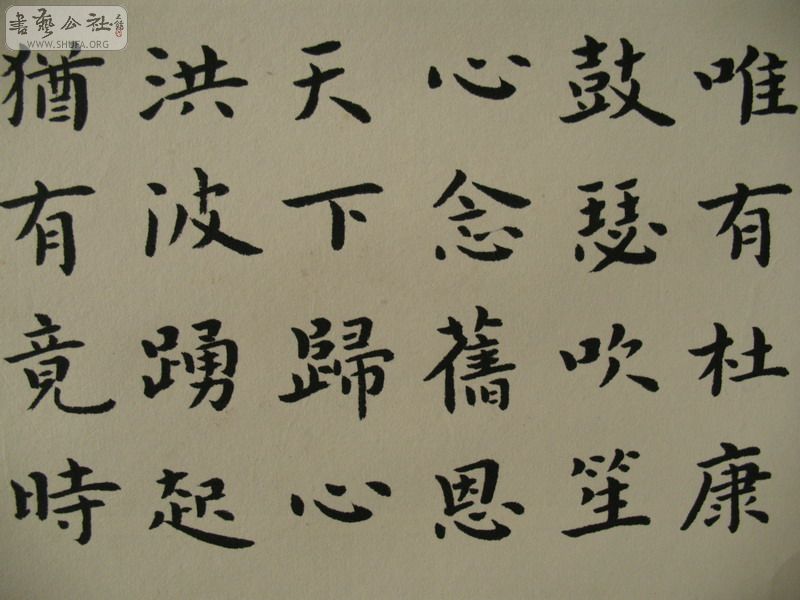 唯有杜康
鼓瑟吹笙
心念舊恩
天下歸心
洪波踴起
猶有竟時
書藝公社
WWW.SHUFA.ORG